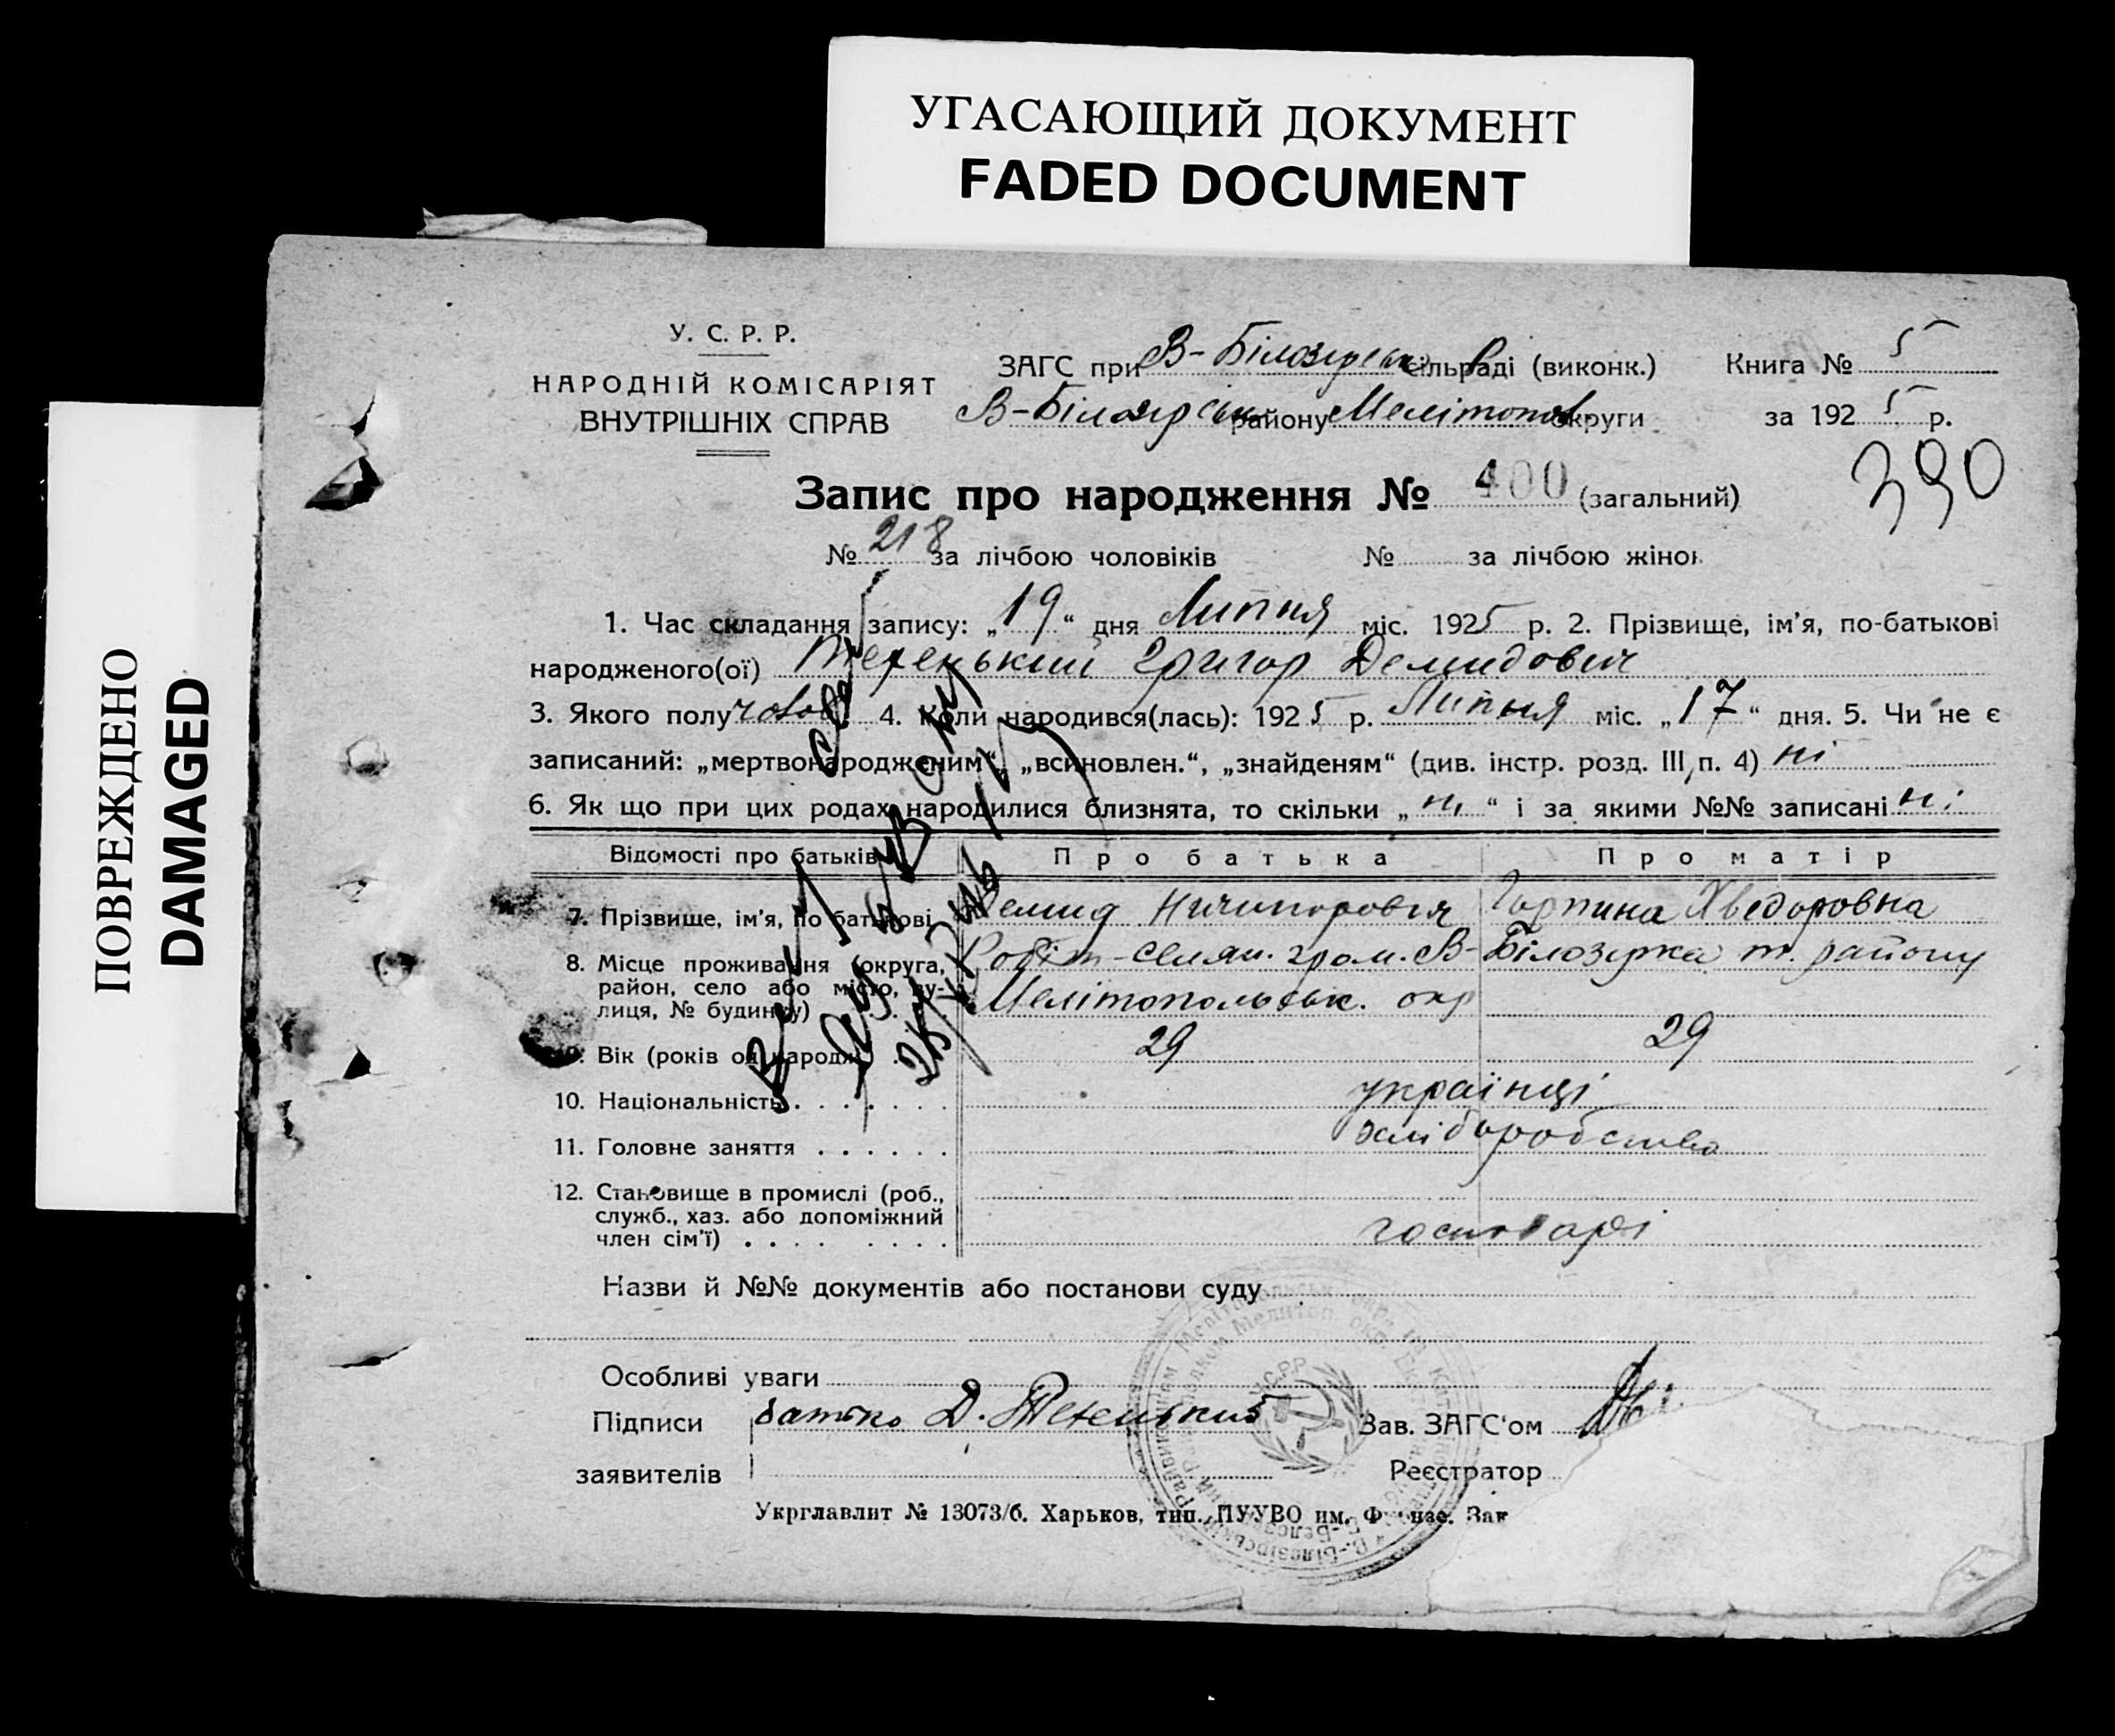 УГАСАЮЩИЙ ДОКУМЕНТ
FADED DOCUMENT
ПОВРЕЖДЕНО
DAMAGED
У. С. Р. Р.
НАРОДНІЙ КОМІСАРІЯТ
ВНУТРІШНІХ СПРАВ
ЗАГС при В-Білозірськ сільраді (виконк.)
В-Білозірськ району Мелітопол. округи
Книга № 5
за 1925 р.
390
Запис про народження № 400 (загальний)
№ 218 за лічбою чоловіків № за лічбою жінок
1. Час складання запису: „19“ дня Липня міс. 1925 р. 2. Прізвище, ім’я, по-батькові
народженого(ої) Григор Демидович
3. Якого полу чолов. 4. Коли народився(лась): 1925 р. Липня міс. „17“ дня. 5. Чи не є
записаний: „мертвонародженим“, „всиновлен.“, „знайденям“ (див. інстр. розд. III, п. 4) ні
6. Як що при цих родах народилися близнята, то скільки „ні“ і за якими №№ записані ні
Відомості про батьків Про батька Про матір
7. Прізвище, ім’я, по батькові Демид Ничипорович Горпина Хведоровна
8. Місце проживання (округа, район, село або місто, вулиця, № будинку) Робіт-селян. гром. В-Білозірка т. району
Мелітопольськ. окр
9. Вік (років од народж.) 29 29
10. Національність українці
11. Головне заняття хліборобство
12. Становище в промислі (роб.,
служб., хаз. або допоміжний
член сім’ї) господарі
Назви й №№ документів або постанови суду
Особливі уваги
Підписи батько Д.
заявителів
Зав. ЗАГС‘ом
Реєстратор
У.С.Р.Р.
Укрглавлит № 13073/б. Харьков, тип. ПУУВО им. Фрунзе. Зак